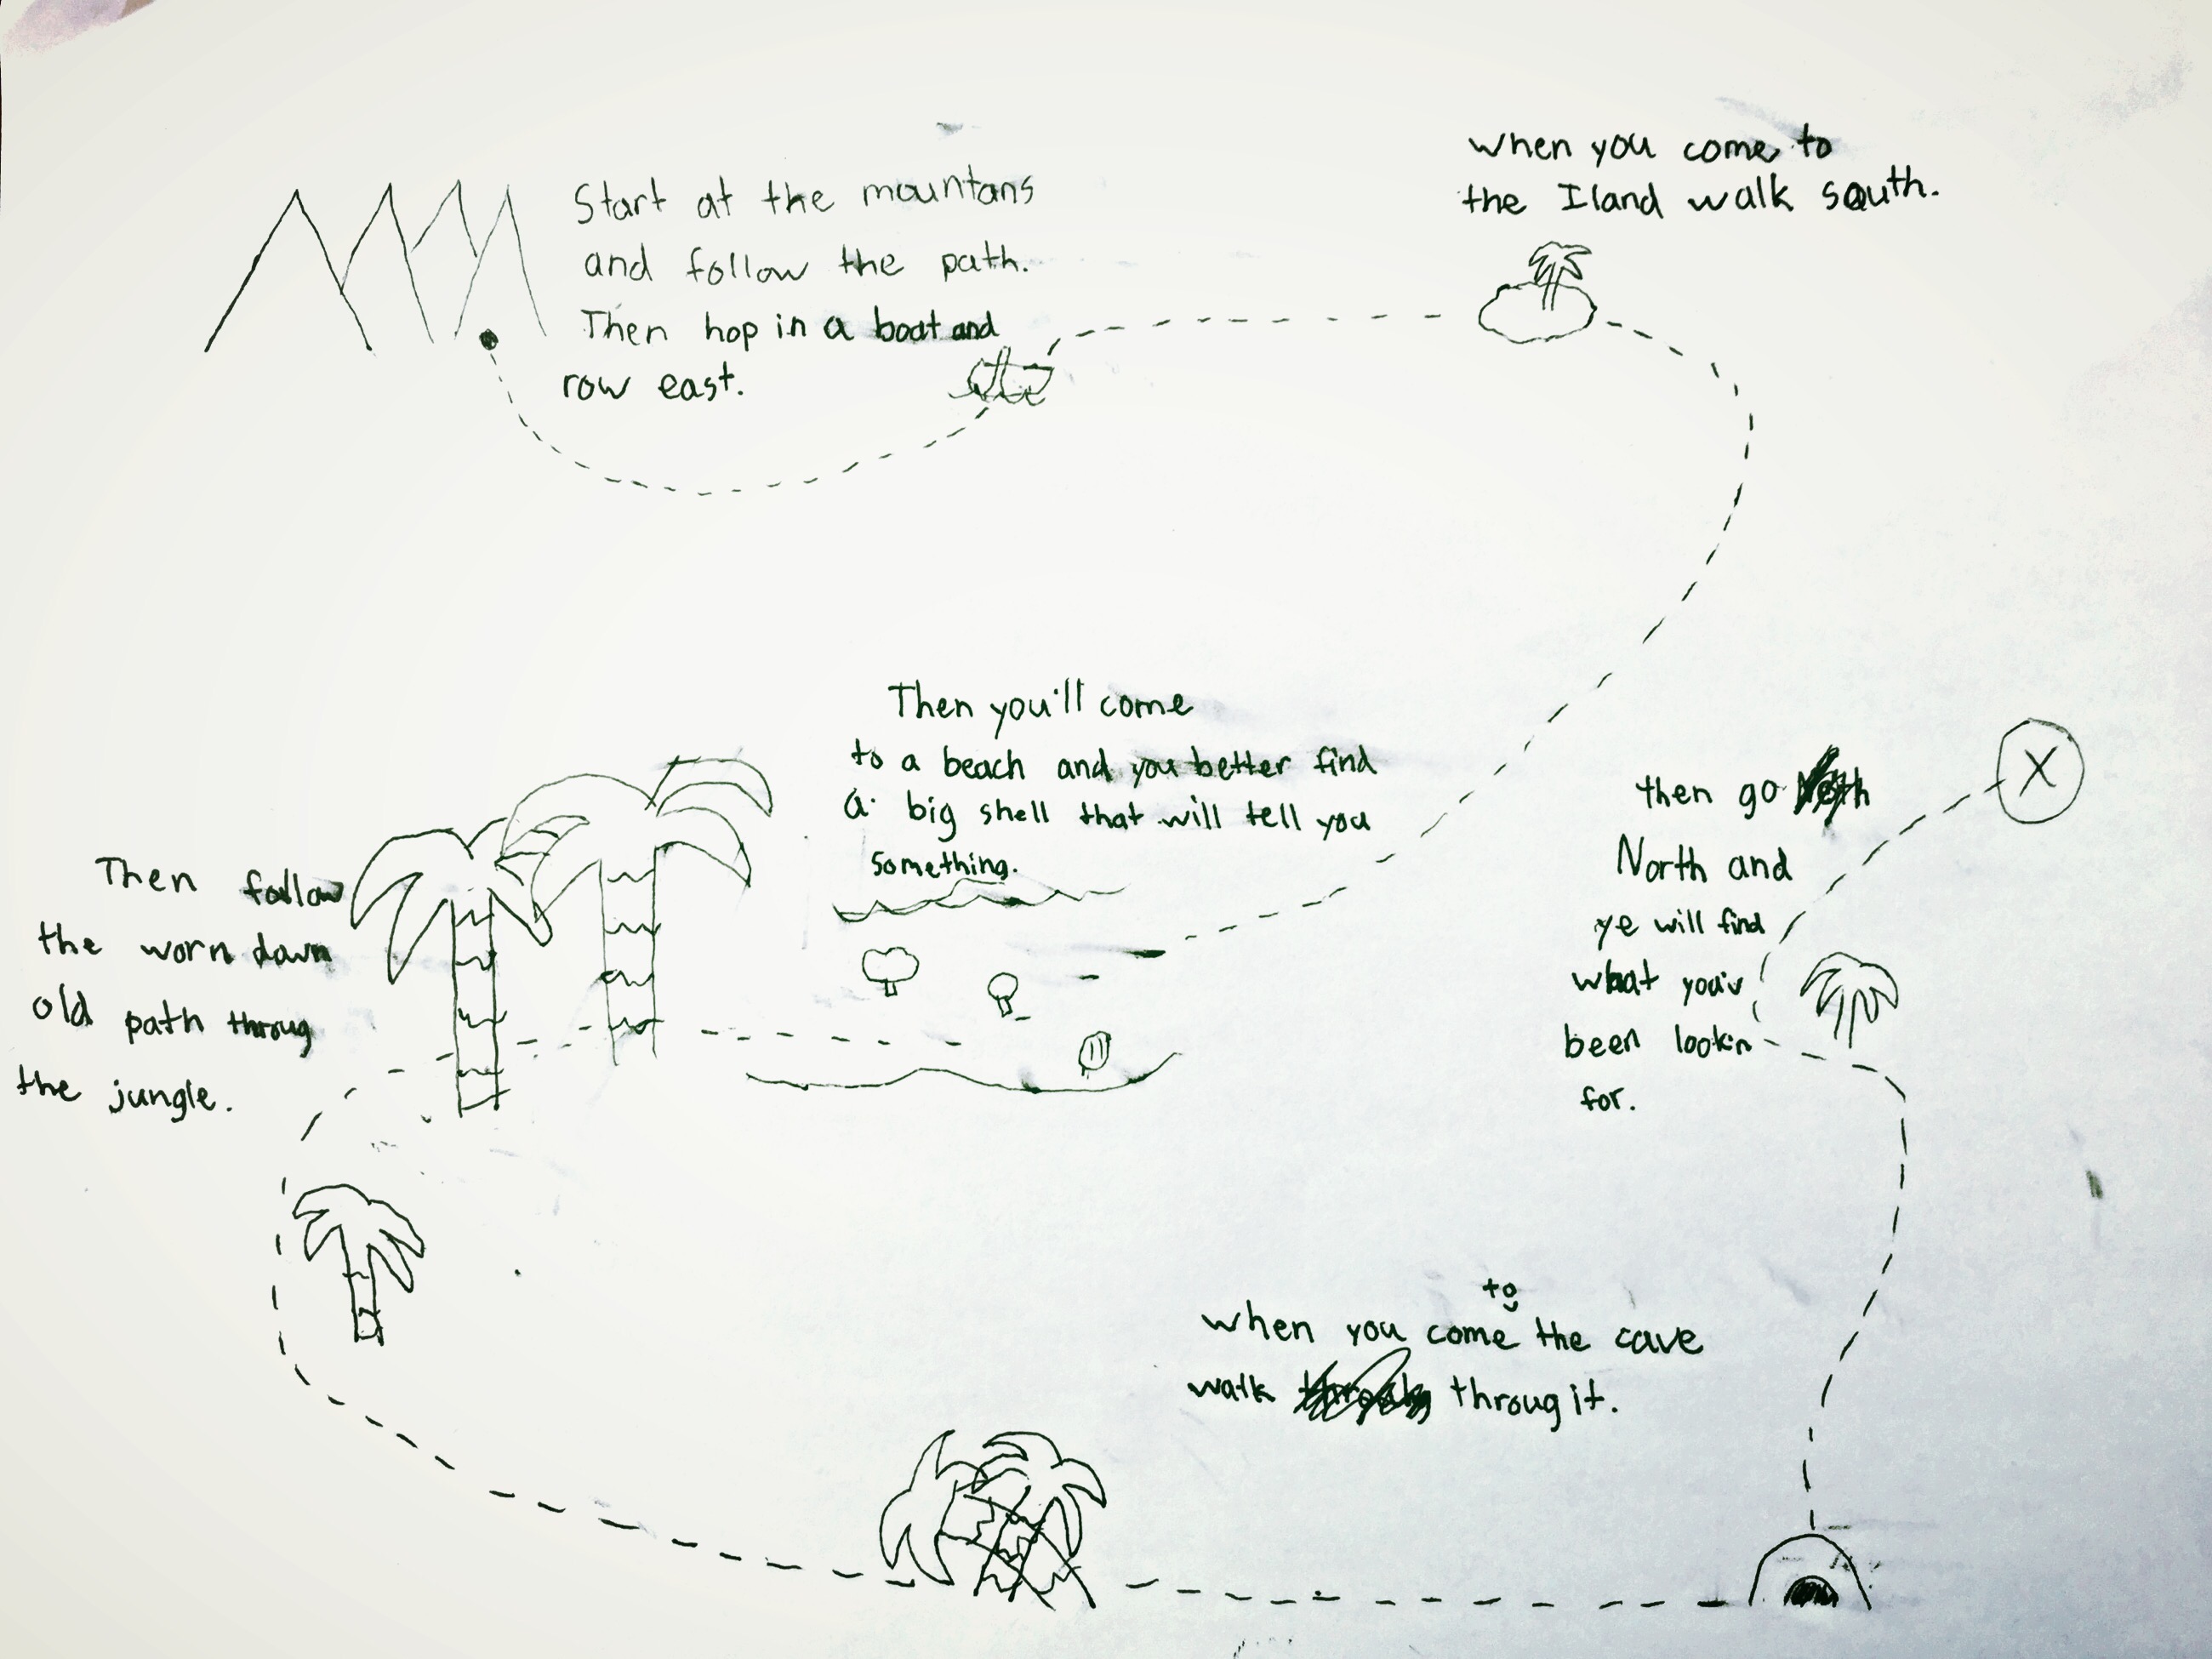 Start at the mountans
and follow the path.
Then hop in a boat and
row east.
when you come to
the Iland walk south.
Then you'll come
to a beach and you better find
a big shell that will tell you
something.
Then follow
the worn down
old path throug
the jungle.
when you come to the cave
walk throug it.
then go
North and
ye will find
what you'v
been lookin
for.
X